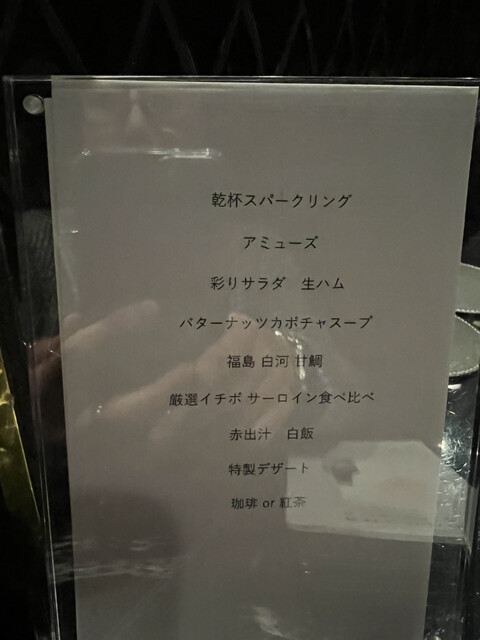 乾杯スパークリング
アミューズ
彩りサラダ　生ハム
バターナッツカボチャスープ
福島 白河 甘鯛
厳選イチボ サーロイン食べ比べ
赤出汁　白飯
特製デザート
珈琲 or 紅茶